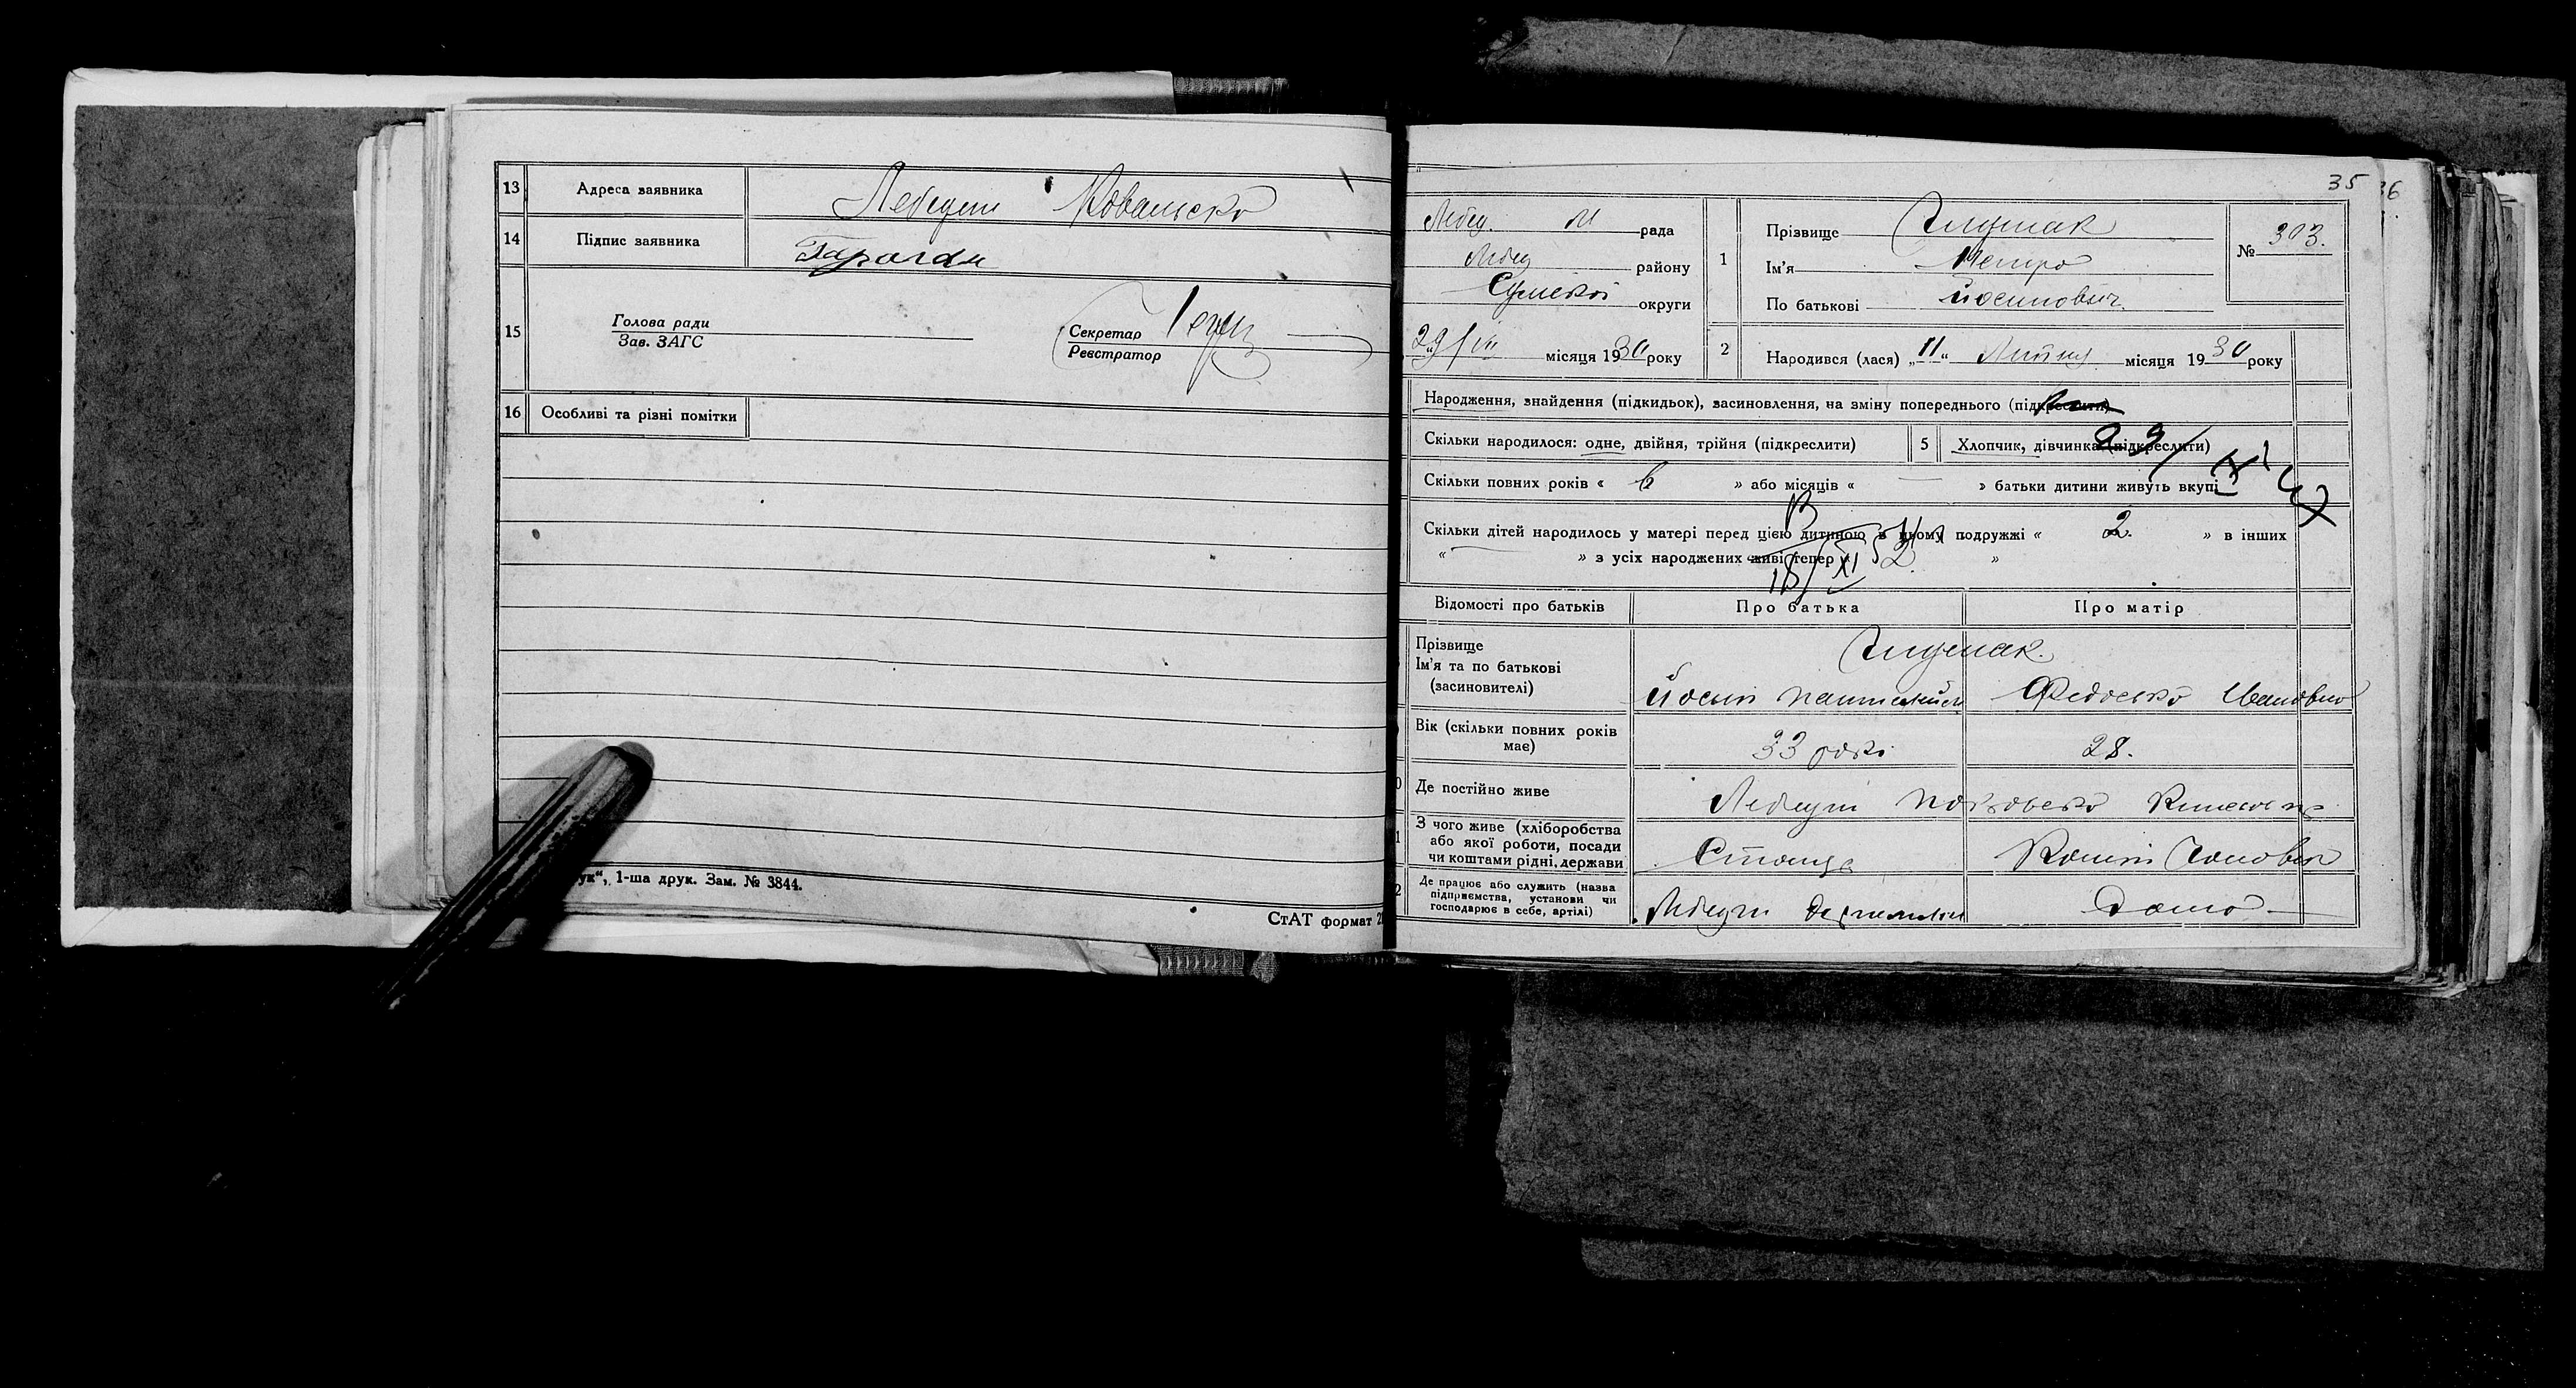 13 Адреса заявника Лебедин Ковальська
14 Підпис заявника
15 Голова ради
Зав. ЗАГС
Секретар
Реєстратор
16 Особливі та різні помітки
ук“, 1-ша друк. Зам. № 3844.
СтАТ формат
35
36
Лебед. М рада
Лебед району
Сумської округи
29/VII місяця 1930 року
1 Прізвище
Ім'я Петро
По батькові Йосипович
№ 303.
2 Народився (лася) „11“ Липня місяця 1930 року
Народження, знайдення (підкидьок), засиновлення, на зміну попереднього (підкреслити)
Скільки народилося: одне, двійня, трійня (підкреслити)
5 Хлопчик, дівчинка (підкреслити)
Скільки повних років « 6 » або місяців « — » батьки дитини живуть вкупі
Скільки дітей народилось у матері перед цією дитиною в цьому подружжі « 2. » в інших
« — » з усіх народжених живі тепер « 2. »
Відомості про батьків
Про батька
Про матір
Прізвище
Ім'я та по батькові
(засиновителі)
Йосип
Федоська Івановна
Вік (скільки повних років
має)
33 роки
28.
Де постійно живе
Лебедин
З чого живе (хліборобства
або якої роботи, посади
чи коштами рідні, держави
Кошті чоловіка
Де працює або служить (назва
підприємства, установи чи
господарює в себе, артілі)
Лебедин
Дома